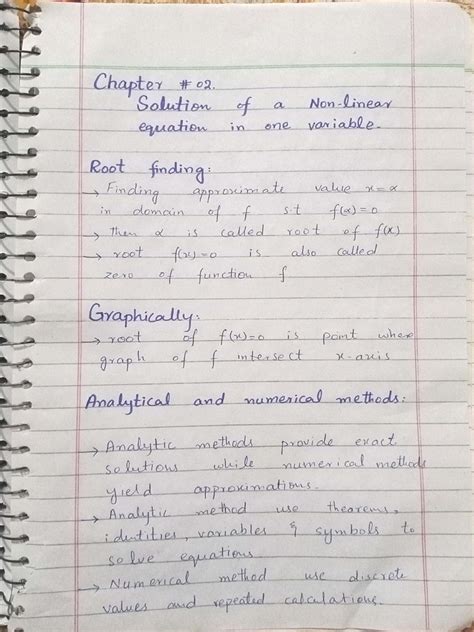 Chapter # 02.
Solution of a Non-linear
equation in one variable.
Root finding:
→ Finding approximate value x=α
in domain of f s.t f(α)=0
→ then α is called root of f(x)
→ root f(x)=0 is also called
zero of function f
Graphically:
→ root of f(x)=0 is point where
graph of f intersect x-axis
Analytical and numerical methods:
→ Analytic methods provide exact
solutions while numerical methods
yield approximations.
→ Analytic method use theorems,
identities, variables & symbols to
solve equations
→ Numerical method use discrete
values and repeated calculations.